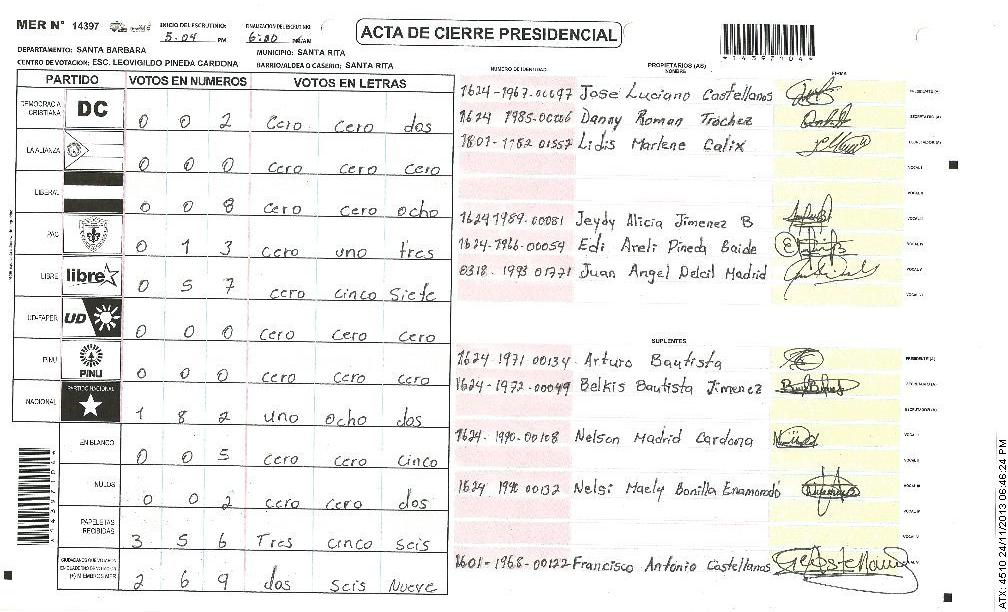 MER N° 14397 INICIO DEL ESCRUTINIO: 5:04 PM FINALIZACION DEL ESCRUTINIO: 6:00 PM/AM ACTA DE CIERRE PRESIDENCIAL
*14397104*
DEPARTAMENTO: SANTA BARBARA MUNICIPIO: SANTA RITA
CENTRO DE VOTACION: ESC. LEOVIGILDO PINEDA CARDONA BARRIO/ALDEA O CASERIO: SANTA RITA
PARTIDO VOTOS EN NUMEROS VOTOS EN LETRAS
DEMOCRACIA CRISTIANA DC 0 0 2 Cero Cero dos
LA ALIANZA 0 0 0 Cero Cero Cero
LIBERAL 0 0 8 Cero Cero ocho
PAC 0 1 3 Cero uno tres
LIBRE libre 0 5 7 Cero Cinco Siete
UD-FAPER UD 0 0 0 Cero Cero Cero
PINU PINU 0 0 0 Cero Cero Cero
NACIONAL PARTIDO NACIONAL 1 8 2 uno ocho dos
EN BLANCO 0 0 5 Cero Cero Cinco
NULOS 0 0 2 Cero Cero dos
PAPELETAS RECIBIDAS 3 5 6 Tres Cinco seis
CIUDADANOS QUE VOTARON (+) MIEMBROS MER 2 6 9 dos Seis Nueve
NUMERO DE IDENTIDAD PROPIETARIOS (AS) NOMBRE FIRMA
1624-1967-00097 Jose Luciano Castellanos PRESIDENTE (A)
1624 1985-00206 Danny Roman Trochez SECRETARIO (A)
1801-1982 01557 Lidis Marlene Calix ESCRUTADOR (A)
VOCAL I
VOCAL II
1624 1989-00081 Jeydy Alicia Jimenez B VOCAL III
1624-1966-00054 Edi Areli Pineda Baide VOCAL IV
0318-1993 01771 Juan Angel Delcil Madrid VOCAL V
VOCAL VI
SUPLENTES
1624 1971 00134 Arturo Bautista PRESIDENTE (A)
1624-1972-00049 Belkis Bautista Jimenez SECRETARIO (A)
ESCRUTADOR (A)
1624-1990-00108 Nelson Madrid Cardona VOCAL I
VOCAL II
1624 1990 00132 Nelsi Maely Bonilla Enamorado VOCAL III
VOCAL IV
1601-1968-00122 Francisco Antonio Castellanos VOCAL V
*14397104*
ATX: 4510 24/11/2013 06:46:24 PM